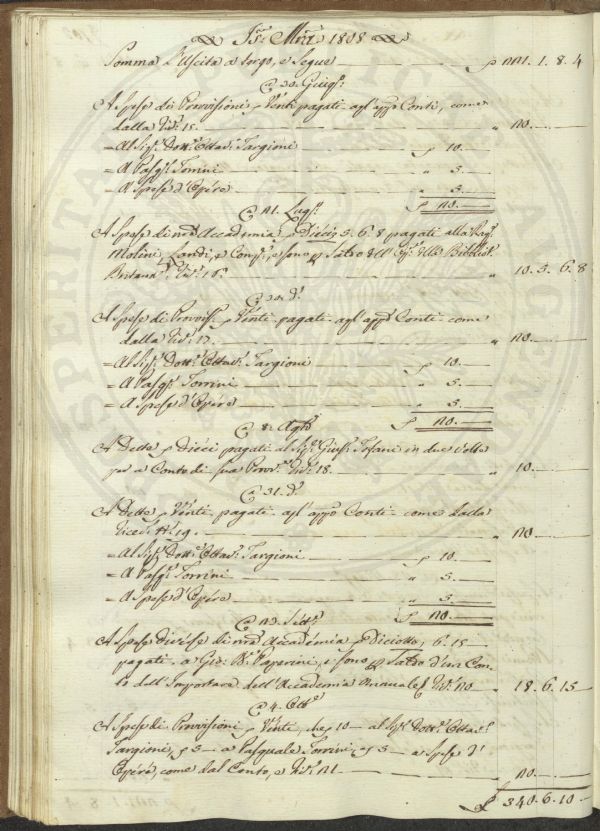 1808
Somma l'Uscita a tergo, e Segue — 221. 1. 8. 4
A dì 30. Giug.o
A Spese di Provvisioni p Venti pagati agl'app.o Conti, come
dalla Ric.a 15. — 20. —
= Al Sig.r Dott.e Ottav.o Targioni — 10. —
= A Pasq.e Torrini — 5. —
= A Spese d'Opére — 5. —
20. —
Lug.o
A Spese di Accademia p Dieci, 5. 6. 8 pagati alla Rag.e
Molini, Landi, e Comp.i, e sono p Saldo della Bibliot.
Britan.a Ric.a 16. — 10. 5. 6. 8
A 30. d.o
A Spese di Provviss. p Venti pagati agl'app.o Conti come
dalla Ric.a 17. — 20. —
= Al Sig.r Dott.e Ottav.o Targioni — 10. —
= A Pasq.e Torrini — 5. —
= A Spese d'Opére — 5. —
20. —
Ag.o
A Dette p Dieci pagati al Sig.r Gius.e Tofani in due volte
per a Conto di sua Provv.e Ric.a 18. — 10. —
A 31. d.o
A Dette p Venti pagati agl'app.o Conti come dalla
Ricev.a N.o 19. — 20. —
= Al Sig.r Dott.e Ottav.o Targioni — 10. —
= A Pasq.e Torrini — 5. —
= A Spese d'Opére — 5. —
20. —
Sett.e
A Spese Diverse di Accadémia p Diciotto, 6. 15
pagati a Gio. B.a Paperini, e sono p Saldo d'un Con-
to dell'Importare dell'Accademia Ric.a 20 — 18. 6. 15
A 4. Ott.e
A Spese di Provvisioni p Venti, che 10 — al Sig.r Dott.e Ottav.o
Targioni, 5 — a Pasquale Torrini, e 5 — a Spese d'
Opére, come dal Conto, e Ric.a 21 — 20. —
340. 6. 10 —